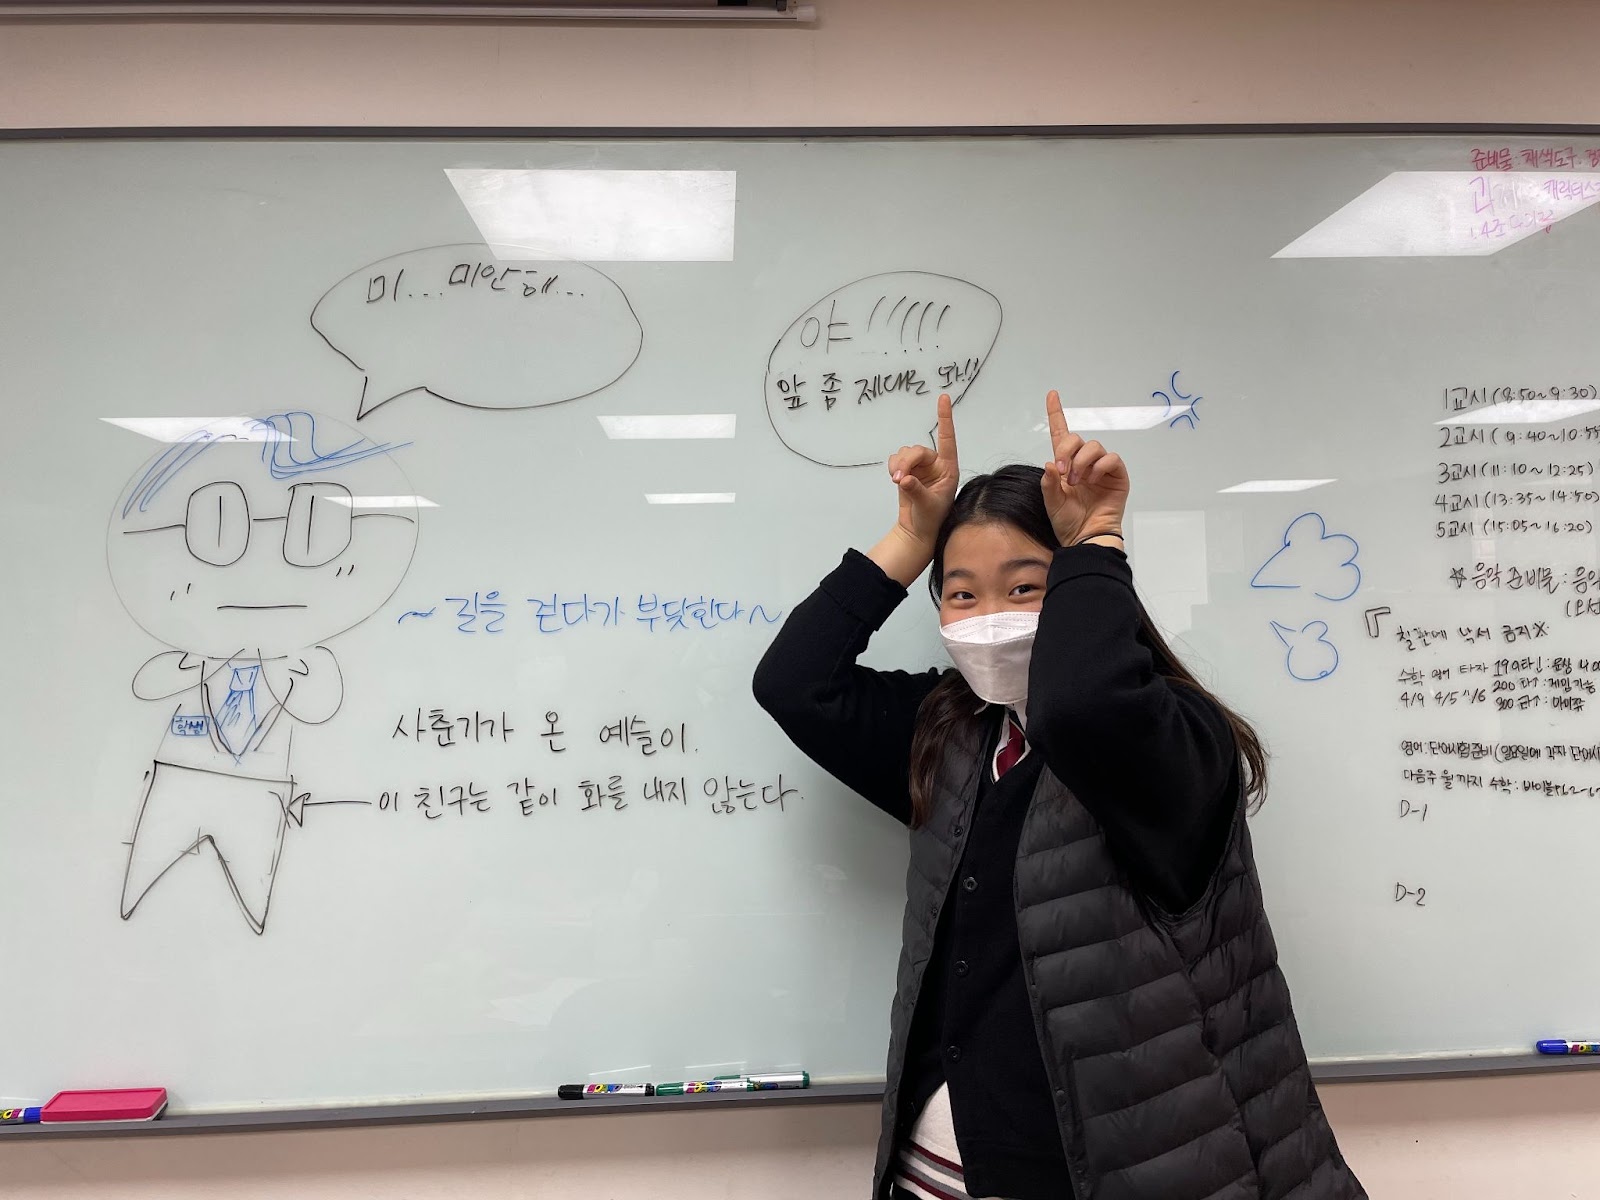 미...미안해...
야!!!!!
앞 좀 제대로 봐!!
~길을 걷다가 부딪힌다~
학생
사춘기가 온 예슬이.
이 친구는 같이 화를 내지 않는다.
준비물: 채색도구.
캐릭터스
1교시(8:50~9:30)
2교시(9:40~10:55
3교시(11:10~12:25)
4교시(13:35~14:50)
5교시(15:05~16:20)
☆음악 준비물: 음악
칠판에 낙서 금지※
수학 영어 타자 190타↓:
4/9 4/5 4/6 200타↑: 게임가능
300타↑:
영어: 단어시험준비(일요일에 각자 단어시
다음주 월까지 수학: 바이블
D-1
D-2